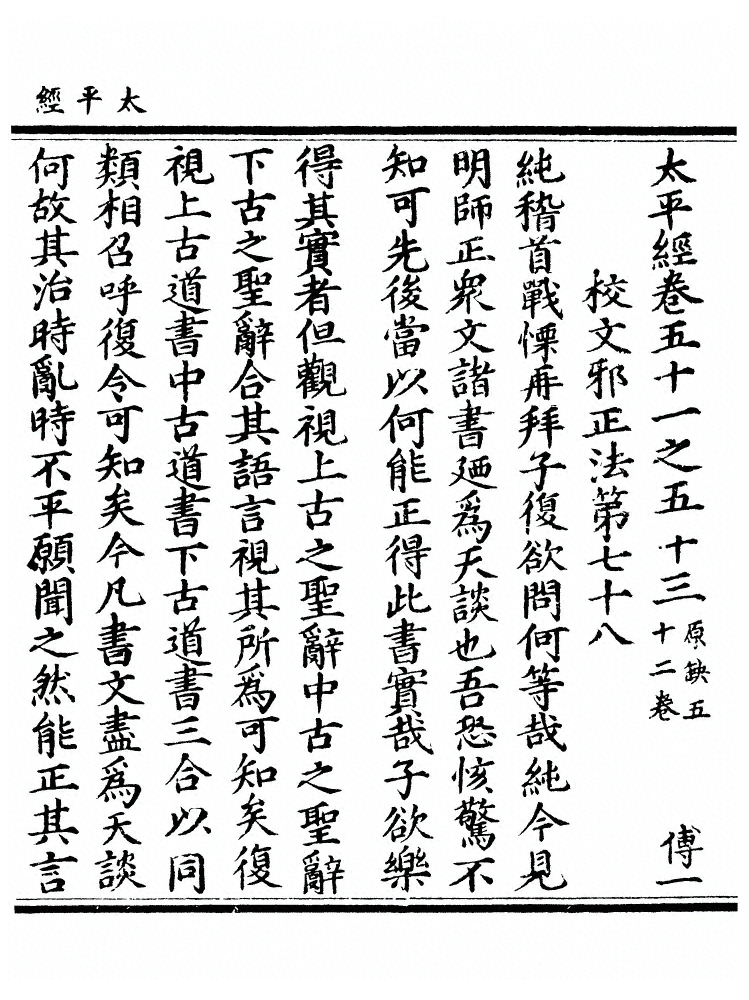 太平經
太平經卷五十一之五十三 原缺五十二卷 傅一
校文邪正法第七十八
純稽首戰慄再拜子復欲問何等哉純今見
明師正衆文諸書廼爲天談也吾恐㤥驚不
知可先後當以何能正得此書實哉子欲樂
得其實者但觀視上古之聖辭中古之聖辭
下古之聖辭合其語言視其所爲可知矣復
視上古道書中古道書下古道書三合以同
類相召呼復令可知矣今凡書文盡爲天談
何故其治時亂時不平願聞之然能正其言